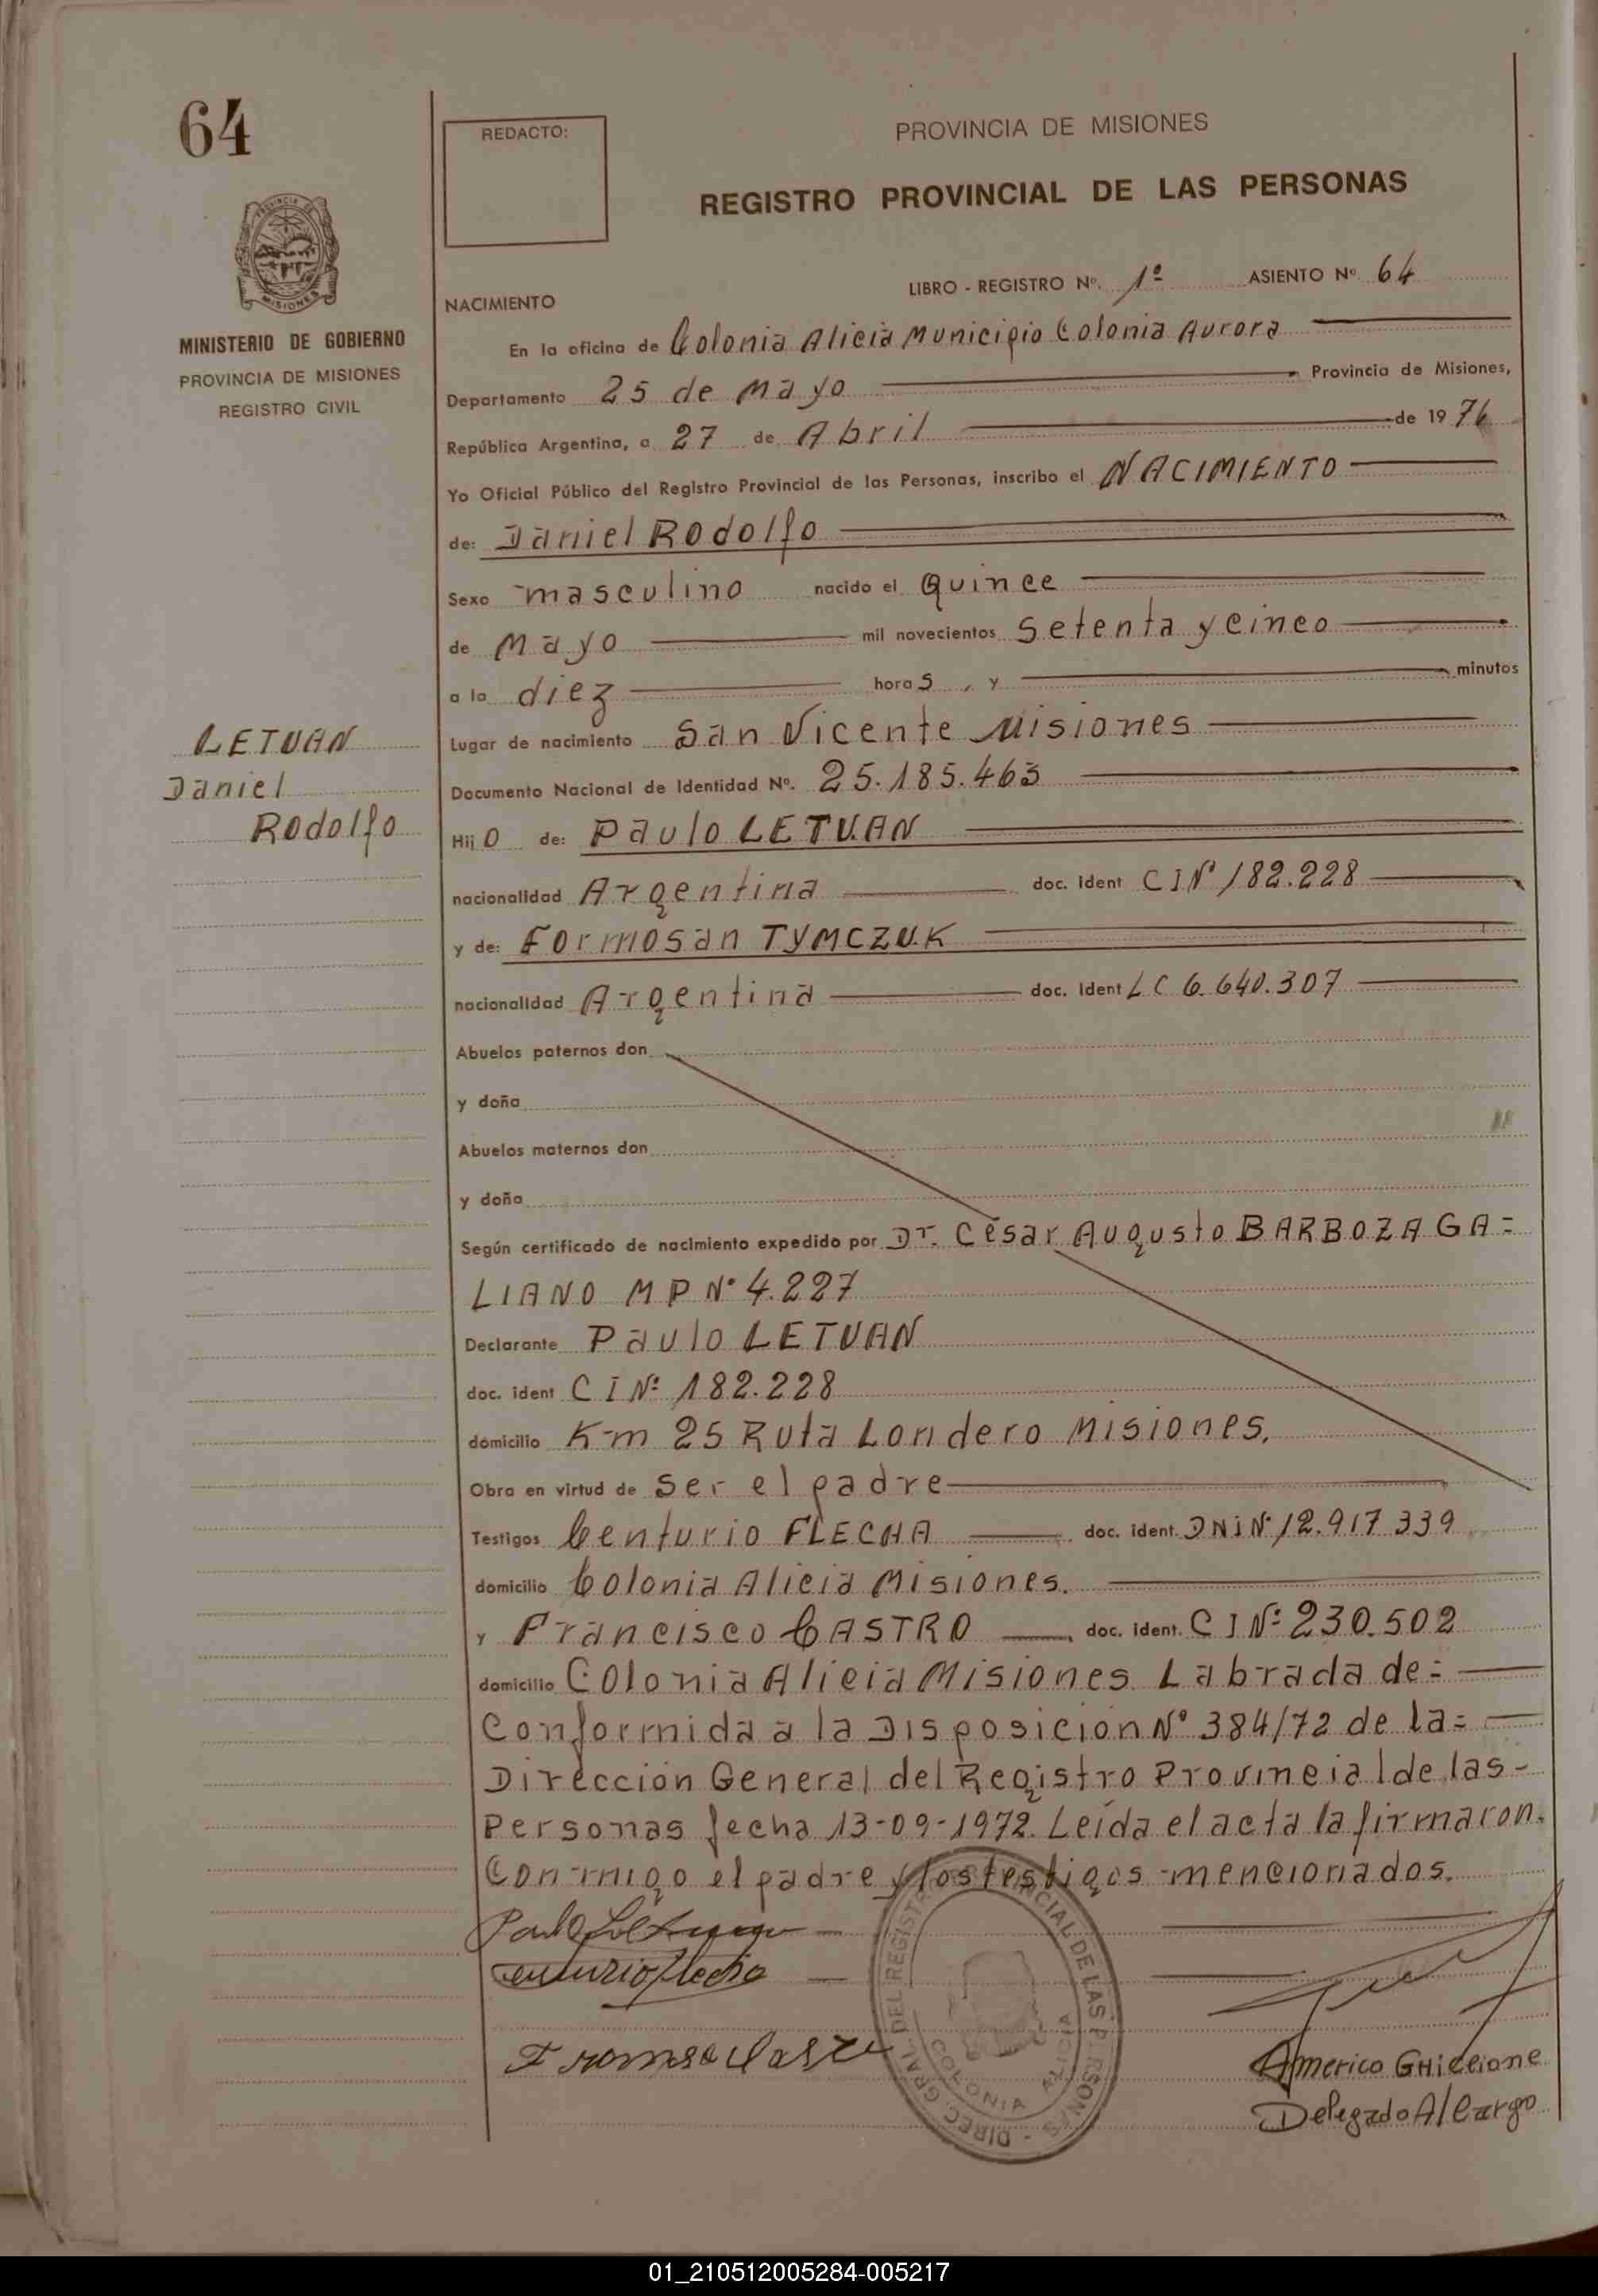 64
REDACTO:
PROVINCIA DE MISIONES
REGISTRO PROVINCIAL DE LAS PERSONAS
PROVINCIA DE
MISIONES
MINISTERIO DE GOBIERNO
PROVINCIA DE MISIONES
REGISTRO CIVIL
LIBRO - REGISTRO Nº. 1º ASIENTO Nº 64
NACIMIENTO
En la oficina de Colonia Alicia Municipio Colonia Aurora
Departamento 25 de Mayo Provincia de Misiones,
República Argentina, a 27 de Abril de 1976
Yo Oficial Público del Registro Provincial de las Personas, inscribo el NACIMIENTO
de: Daniel Rodolfo
Sexo masculino nacido el Quince
de Mayo mil novecientos Setenta y cinco
a la diez horas, y minutos
LETUAN
Daniel
Rodolfo
Lugar de nacimiento San Vicente Misiones
Documento Nacional de Identidad Nº. 25.185.463
Hijo de: Paulo LETUAN
nacionalidad Argentina doc. ident CI Nº 182.228
y de: Formosan TYMCZUK
nacionalidad Argentina doc. Ident LC 6.640.307
Abuelos paternos don
y doña
Abuelos maternos don
y doña
Según certificado de nacimiento expedido por Dr. César Augusto BARBOZA GA=
LIANO MP Nº 4.227
Declarante Paulo LETUAN
doc. ident CI Nº 182.228
domicilio Km 25 Ruta Londero Misiones.
Obra en virtud de Ser el padre
Testigos Centurio FLECHA doc. ident. DNI Nº 12.917 339
domicilio Colonia Alicia Misiones.
y Francisco CASTRO doc. ident. CI Nº 230.502
domicilio Colonia Alicia Misiones Labrada de=
Conformida a la Disposicion Nº 384/72 de la=
Dirección General del Registro Provincial de las-
Personas fecha 13-09-1972. Leída el acta la firmaron.
Conmigo el padre y los testigos mencionados.
Paulo Letuan
Centurio Flecha
DIREC. GRAL. DEL REGISTRO PROVINCIAL DE LAS PERSONAS -
COLONIA ALICIA
Americo GHiccione
Delegado Al Cargo
01_210512005284-005217